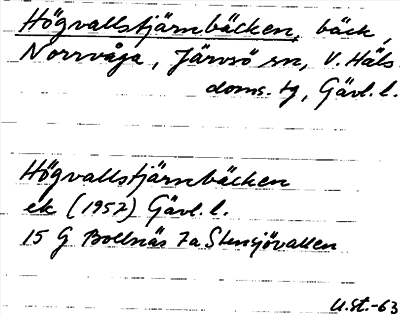 Högvallstjärnbäcken, bäck,
Norrvåga, Järvsö sn, V. Häls.
doms. tg, Gävl. l.
Högvallstjärnbäcken
ek (1957) Gävl. l.
15 G Bollnäs 7a Stensjövallen
U.st.-63